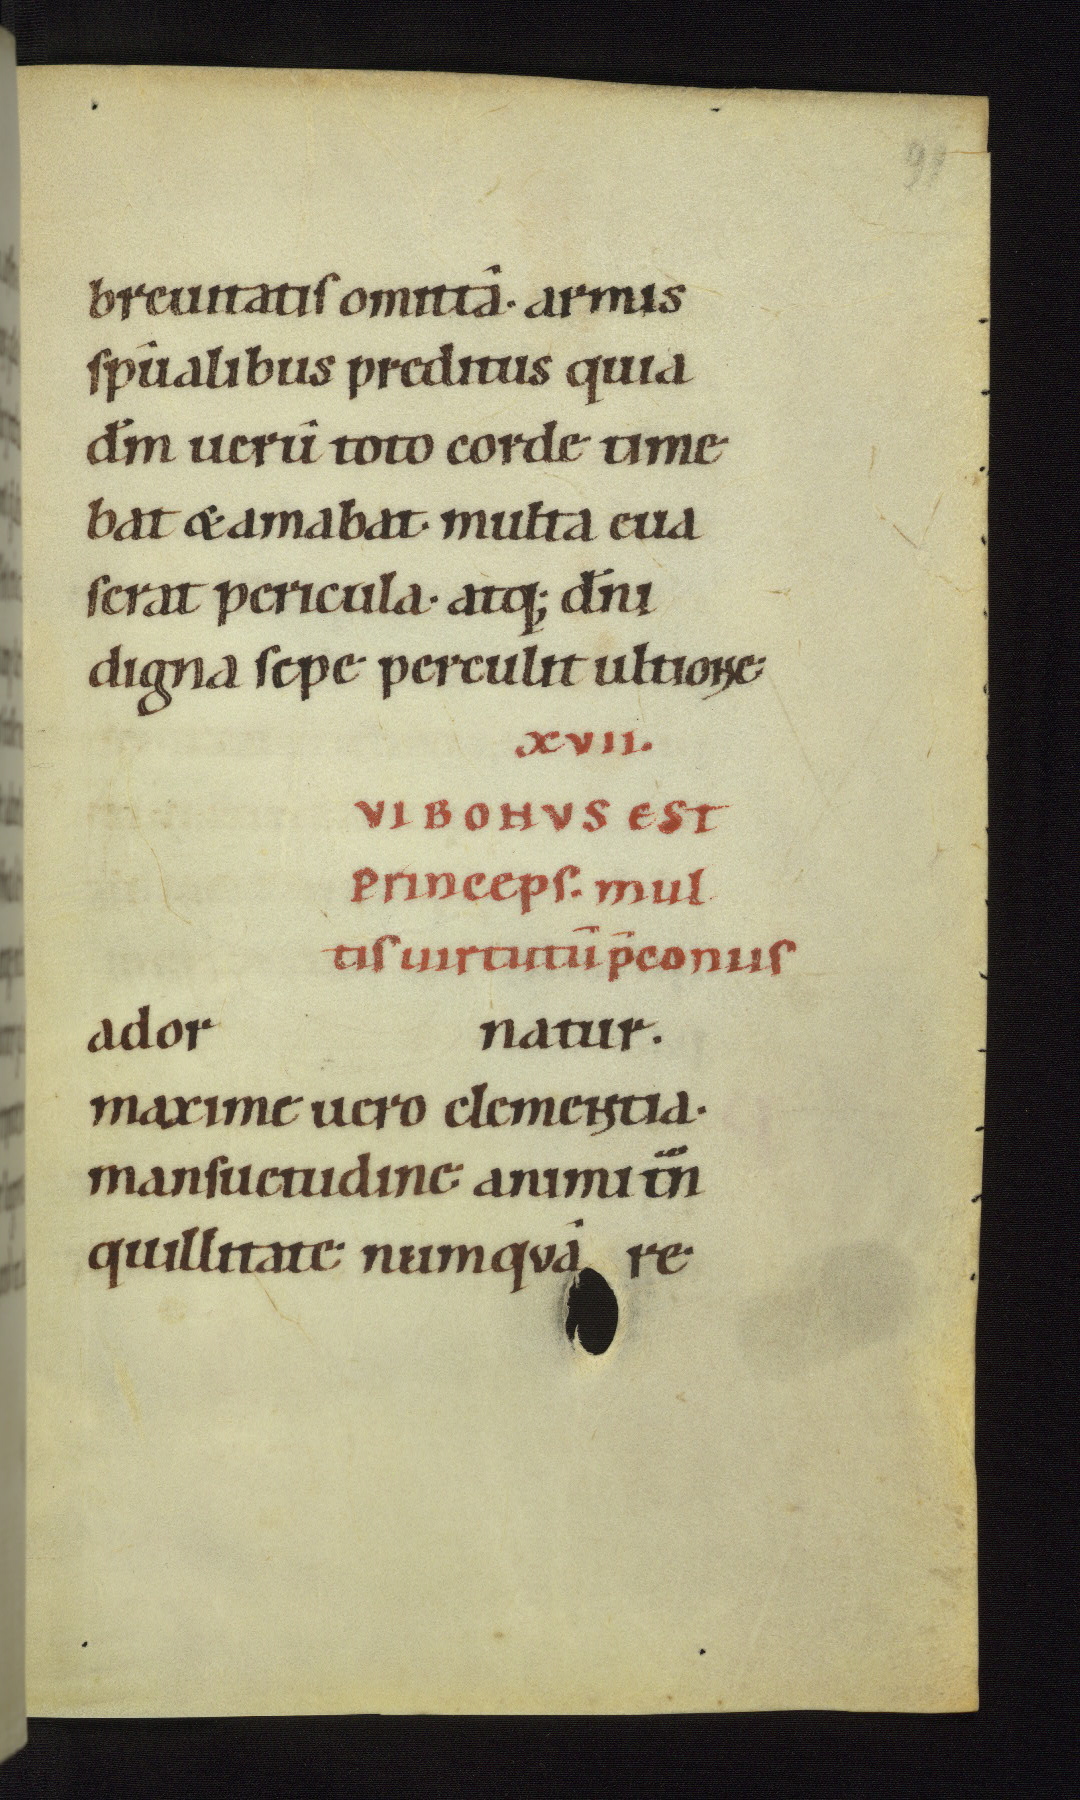 99
breuitatis omittā. armis
sp̄ualibus preditus quia
dm̄ uerū toto corde time
bat & amabat. multa eua
serat pericula. atq; dn̄i
digna sepe perculit ultione
XVII.
VI BONVS EST
princeps. mul
tis uirtutū p̄coniis
ador natur.
maxime uero clementia.
mansuetudine animi tn̄
quillitate numquā re